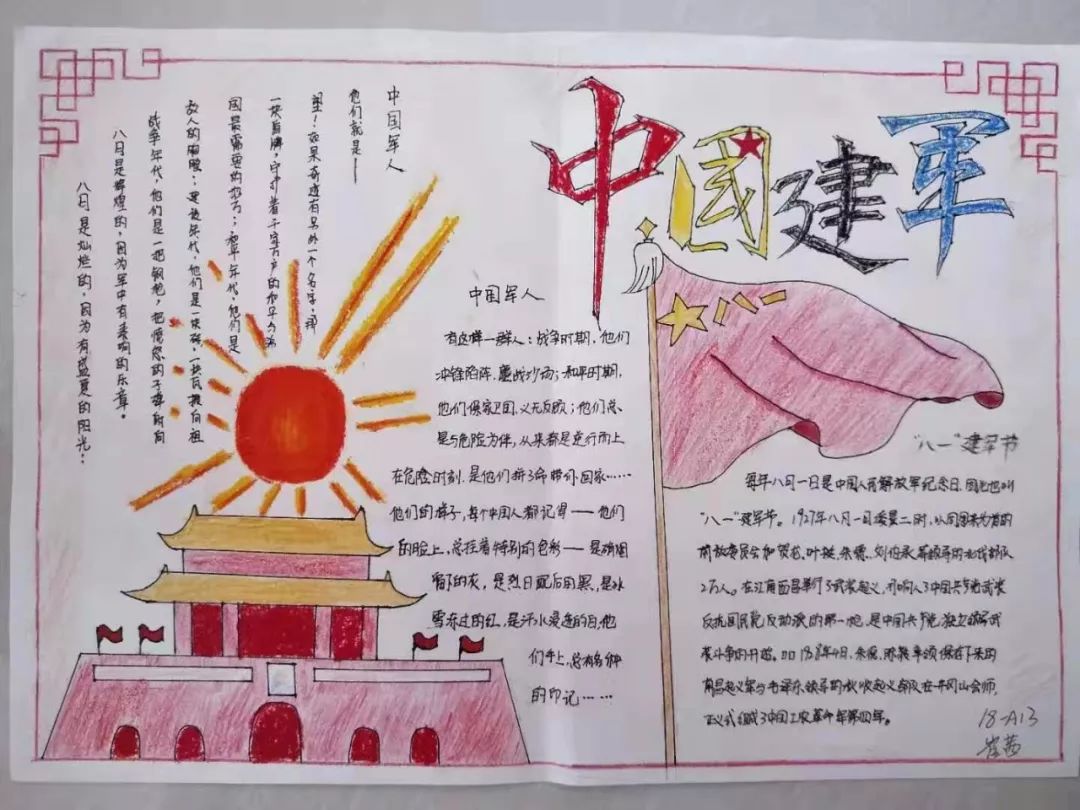 中國建軍
八月是灿烂的,因为有盛夏的阳光;
八月是辉煌的,因为军中有嘹亮的乐章。
战争年代,他们是一把钢枪,把愤怒的子弹射向
敌人的胸膛;建设年代,他们是一块砖,一块瓦投向祖
国最需要的地方;和平年代,他们是
一块盾牌,守护着千家万户的和平与
望!如果奇迹有另外一个名字,那
他们就是——
中国军人
中国军人
有这样一群人:战争时期,他们
冲锋陷阵、鏖战沙场;和平时期,
他们保家卫国、义无反顾;他们总
是与危险为伴,从来都是逆行而上
在危险时刻,是他们拼了命带你回家……
他们的样子,每个中国人都记得——他们
的脸上,总挂着特别的色彩——是硝烟
留下的灰,是烈日晒后的黑,是冰
雪冻过的红,是汗水浸透的白,他
们手上,总有各种
的印记……
“八一”建军节
每年八月一日是中国人民解放军纪念日,因此也叫
“八一”建军节。1927年八月一日凌晨二时,以周恩来为首的
前敌委员会和贺龙、叶挺、朱德、刘伯承等领导的北伐部队
2万人。在江南昌举行了武装起义,打响了中国共产党武装
反抗国民党反动派的第一枪,是中国共产党独立领导武
装斗争的开始。1928年4月,朱德、陈毅率领保存下来的
南昌起义军与毛泽东领导的秋收起义部队在井冈山会师,
正式组成了中国工农革命军第四军。
18-A13
崔茜